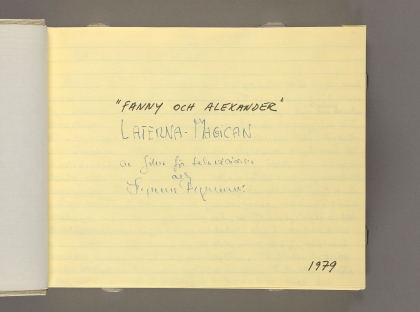 "FANNY OCH ALEXANDER"
LATERNA-MAGICAN
en film för televisionen
av
Ingmar Bergman.
1979